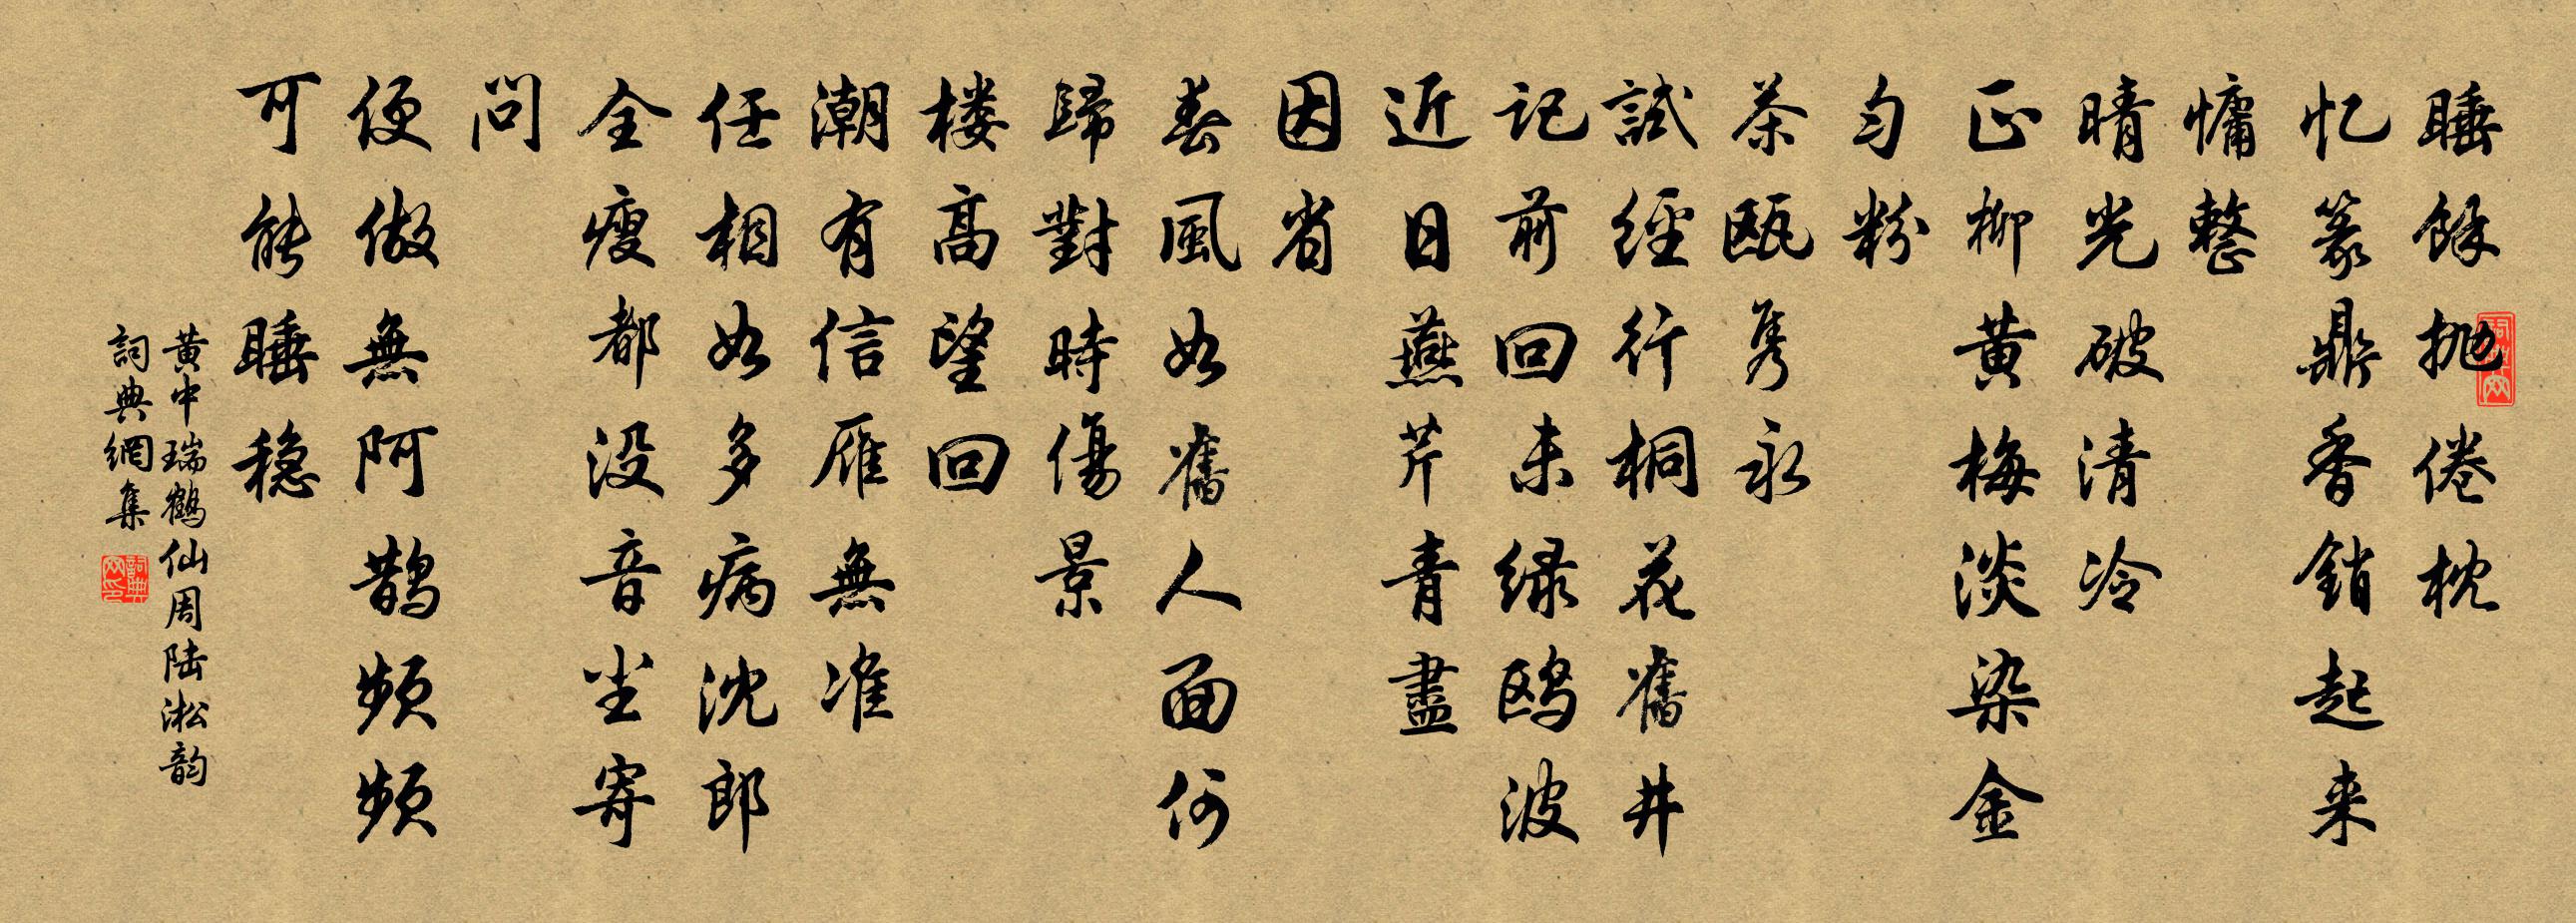 睡餘抛倦枕
忆篆鼎香銷起来
慵整
晴光破清冷
正柳黄梅淡染金
匀粉
茶瓯隽永
試經行桐花舊井
记前回未绿鸥波
近日燕芹青盡
因省
春風如舊人面何
歸對時傷景
楼高望回
潮有信雁無准
任相如多病沈郎
全瘦都没音尘寄
问
便做無阿鹊频频
可能睡稳
黄中瑞鶴仙周陆淞韵
詞典網集
詞典網印